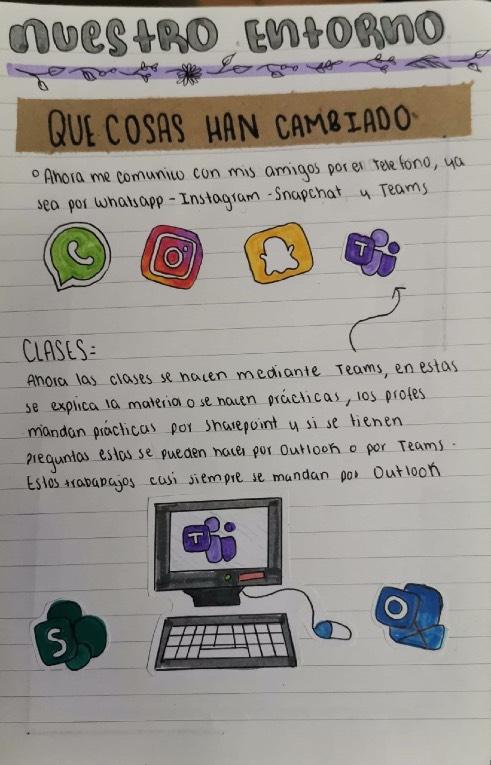 NUESTRO ENTORNO
QUE COSAS HAN CAMBIADO
° Ahora me comunico con mis amigos por el telefono, ya
sea por whatsapp - Instagram - Snapchat y Teams
T
CLASES:
Ahora las clases se hacen mediante Teams, en estas
se explica la materia o se hacen prácticas, los profes
mandan prácticas por sharepoint y si se tienen
preguntas estas se pueden hacer por Outlook o por Teams.
Estos trabapajos casi siempre se mandan por Outlook
T
S
O